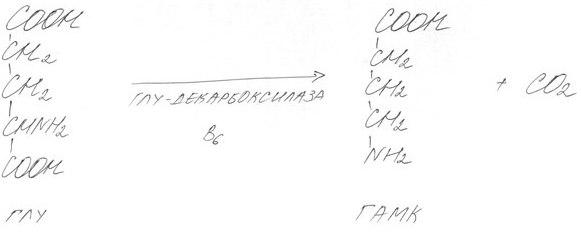 COOH
CH2
CH2
CHNH2
COOH
ГЛУ
ГЛУ-ДЕКАРБОКСИЛАЗА
B6
COOH
CH2
CH2
CH2
NH2
ГАМК
+ CO2